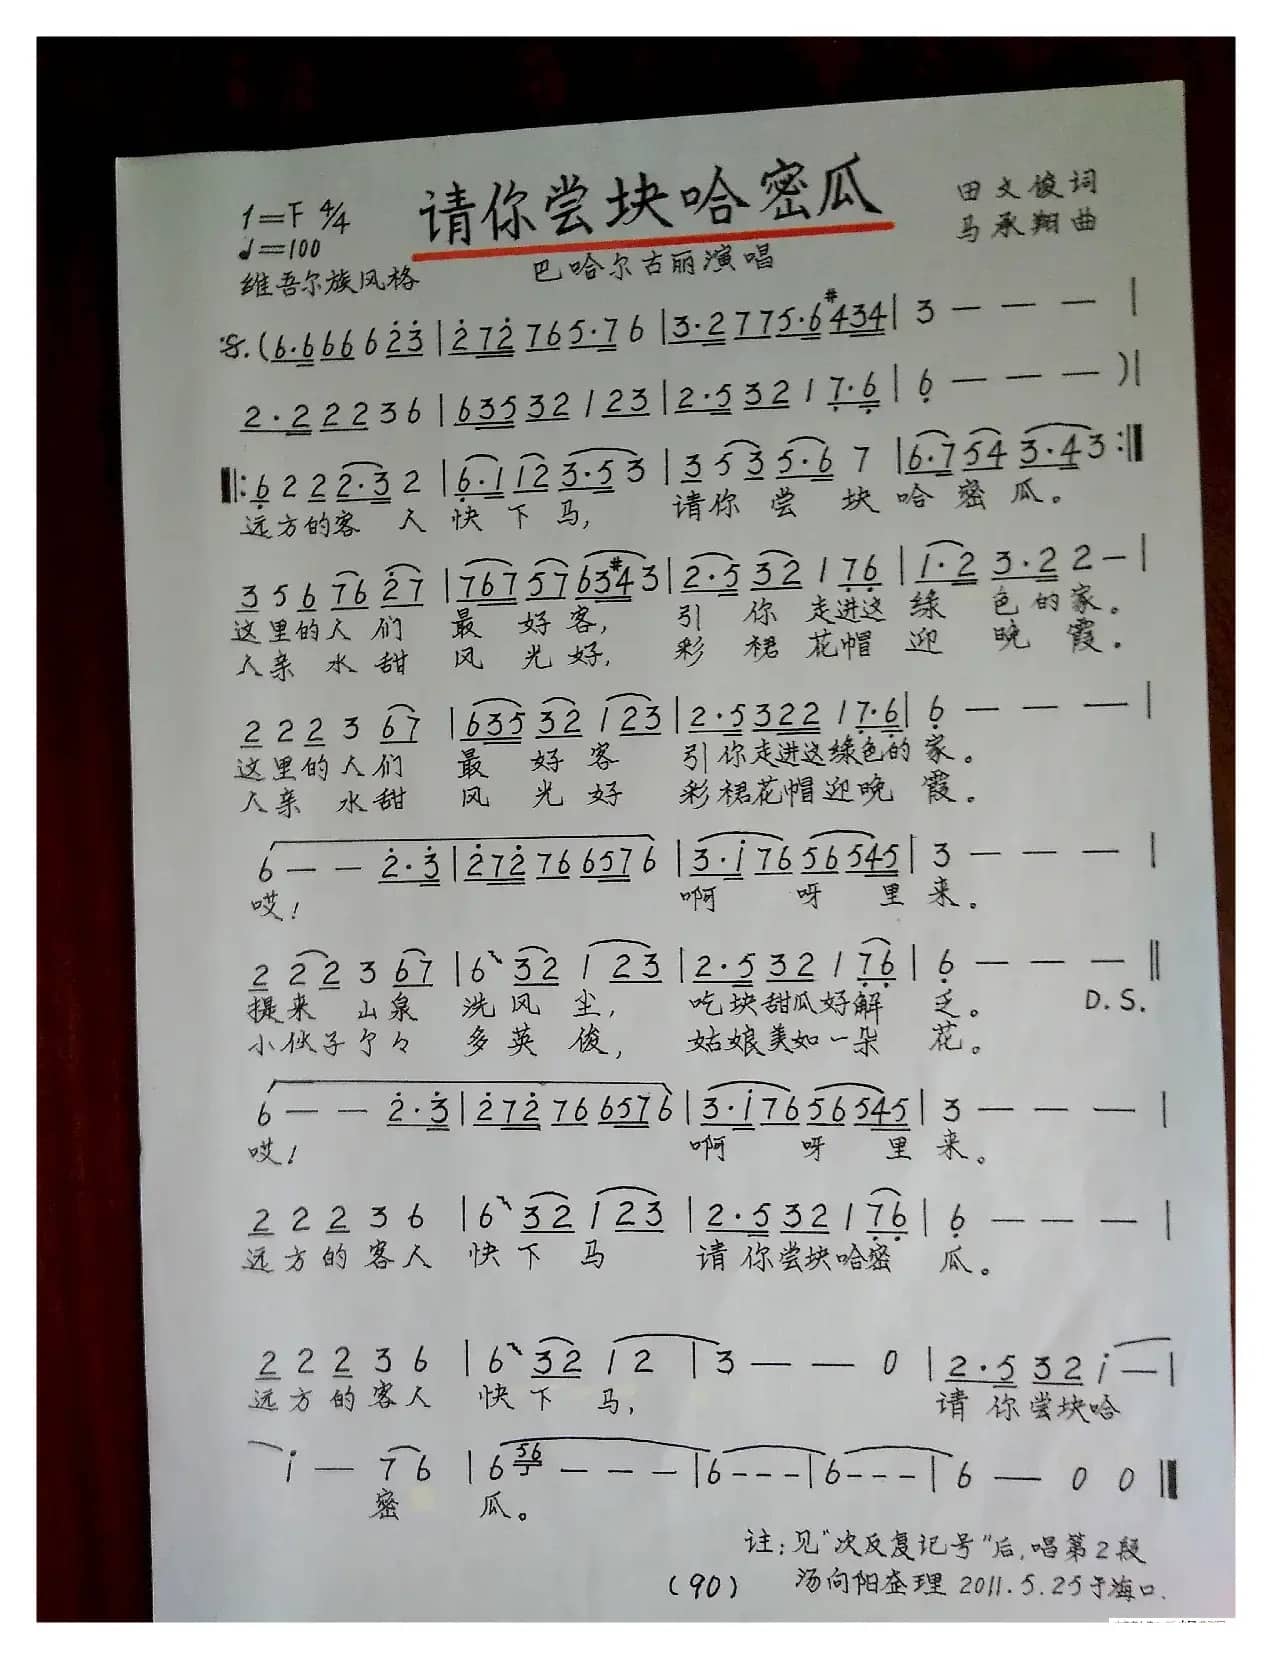 请你尝块哈密瓜
1=F 4/4
♩=100
维吾尔族风格
田文俊词
马承翔曲
巴哈尔古丽演唱
(6·6 6 6 6 2̇ 3̇ | 2̇ 7 2̇ 7 6 5·7 6 | 3·2 7 7 5·6 #4 3 4 | 3 — — — |
2·2 2 2 3 6 | 6 3 5 3 2 1 2 3 | 2·5 3 2 1 7·6 | 6 — — — ) |
‖: 6 2 2 2·3 2 | 6·1 1 2 3·5 3 | 3 5 3 5·6 7 | 6·7 5 4 3·4 3 :‖
远方的客 人 快下马, 请你 尝 块 哈 密 瓜。
3 5 6 7 6 2̇ 7 | 7 6 7 5 7 6 3 #4 3 | 2·5 3 2 1 7 6 | 1·2 3·2 2 — |
这里的人 们 最 好 客, 引 你 走进这 绿 色的家。
人亲 水 甜 风 光 好, 彩 裙 花帽 迎 晚 霞。
2 2 2 3 6 7 | 6 3 5 3 2 1 2 3 | 2·5 3 2 2 1 7·6 | 6 — — — |
这里的人们 最 好 客 引你走进这绿色的 家。
人亲 水甜 风 光 好 彩裙花帽迎晚 霞。
6 — — 2̇·3̇ | 2̇ 7 2̇ 7 6 6 5 7 6 | 3·1̇ 7 6 5 6 5 4 5 | 3 — — — |
哎! 啊 呀 里 来。
2 2 2 3 6 7 | 6 3 2 1 2 3 | 2·5 3 2 1 7 6 | 6 — — — ‖
提来 山泉 洗风 尘, 吃块甜瓜好解 乏。 D.S.
小伙子个々 多英 俊, 姑娘美如一朵 花。
6 — — 2̇·3̇ | 2̇ 7 2̇ 7 6 6 5 7 6 | 3·1̇ 7 6 5 6 5 4 5 | 3 — — — |
哎! 啊 呀 里 来。
2 2 2 3 6 | 6 3 2 1 2 3 | 2·5 3 2 1 7 6 | 6 — — — |
远方的客人 快下 马 请你尝块哈密 瓜。
2 2 2 3 6 | 6 3 2 1 2 | 3 — — 0 | 2·5 3 2 1̇ — |
远方的客人 快下 马, 请你尝块哈
1̇ — 7 6 | 6 56 — — — | 6 - - - | 6 - - - | 6 — 0 0 ‖
密 瓜。
注:见"次反复记号"后,唱第2段
(90) 汤向阳整理 2011.5.25于海口.